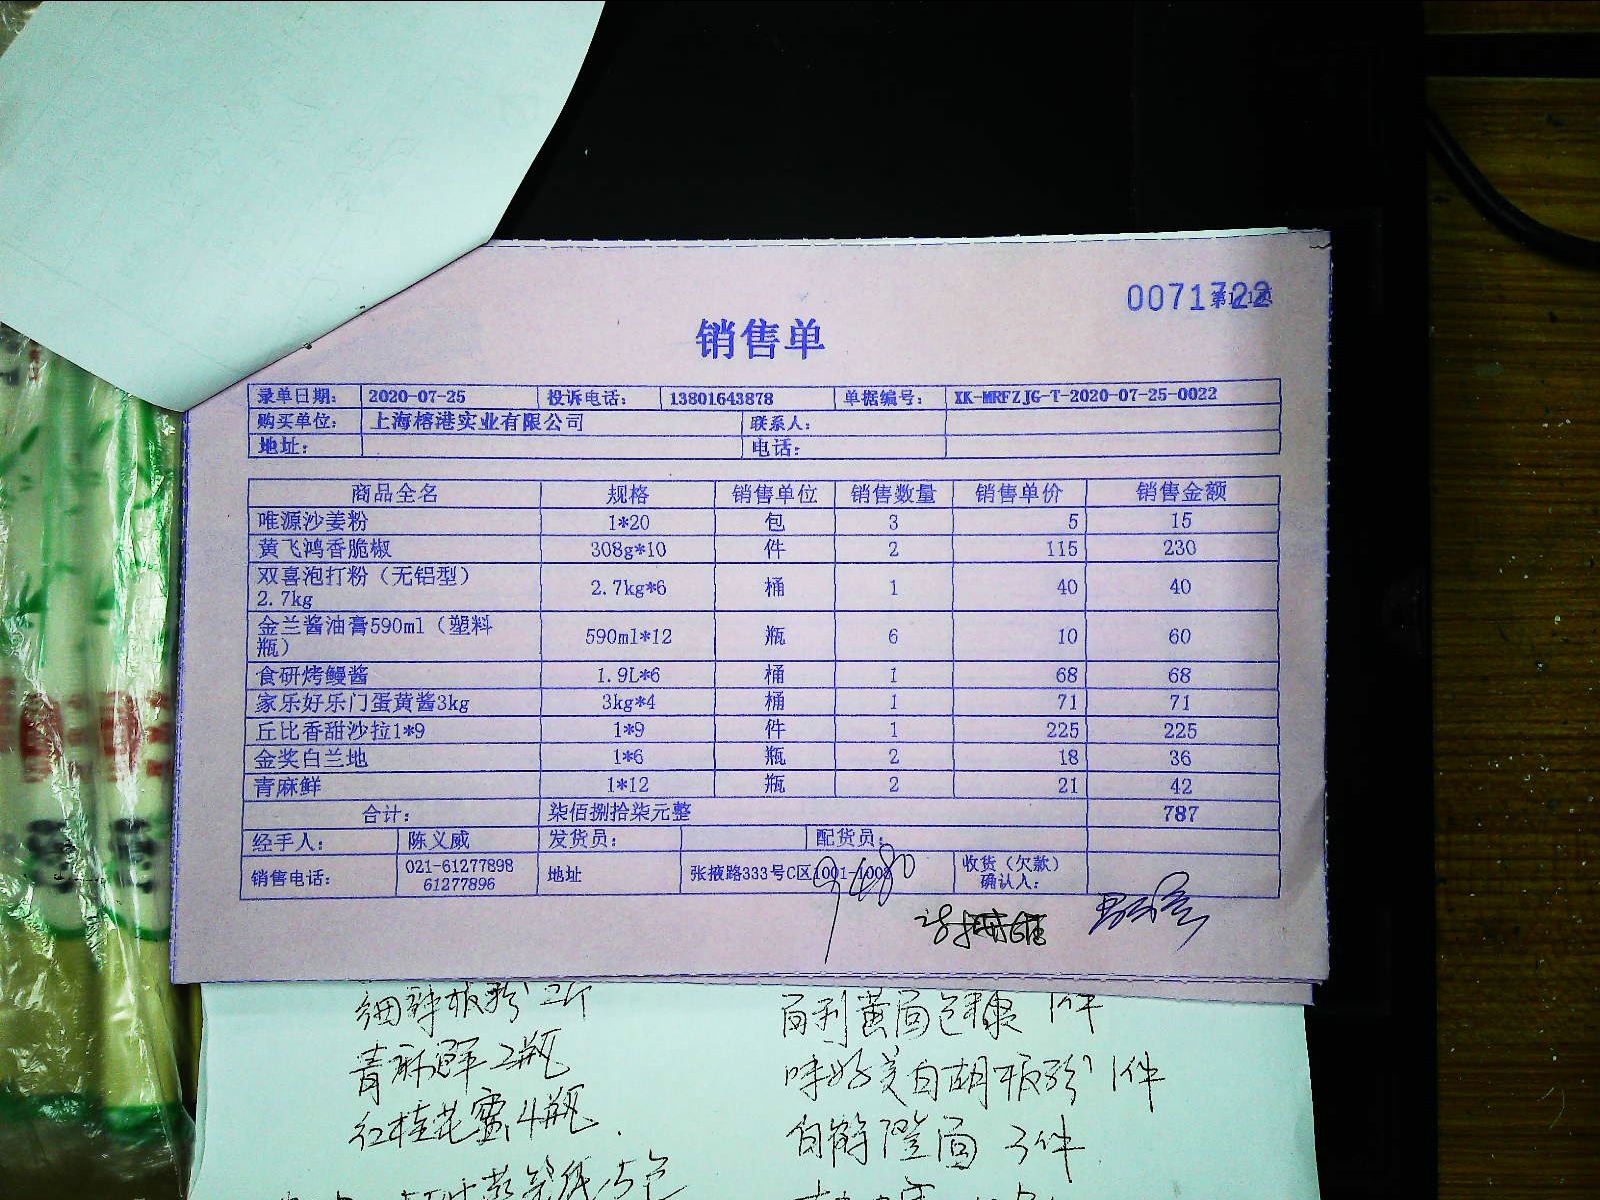 0071722
销售单
录单日期: 2020-07-25 投诉电话: 13801643878 单据编号: XK-MRFZJG-T-2020-07-25-0022
购买单位: 上海榕港实业有限公司 联系人:
地址: 电话:
商品全名 规格 销售单位 销售数量 销售单价 销售金额
唯源沙姜粉 1*20 包 3 5 15
黄飞鸿香脆椒 308g*10 件 2 115 230
双喜泡打粉（无铝型）
2.7kg 2.7kg*6 桶 1 40 40
金兰酱油膏590ml（塑料
瓶） 590ml*12 瓶 6 10 60
食研烤鳗酱 1.9L*6 桶 1 68 68
家乐好乐门蛋黄酱3kg 3kg*4 桶 1 71 71
丘比香甜沙拉1*9 1*9 件 1 225 225
金奖白兰地 1*6 瓶 2 18 36
青麻鲜 1*12 瓶 2 21 42
合计: 柒佰捌拾柒元整 787
经手人: 陈义威 发货员: 配货员:
销售电话: 021-61277898
61277896 地址 张掖路333号C区1001-1008 收货（欠款）
确认人:
细辣椒粉 二斤 百利黄面包糠 1件
青麻鲜 2瓶 味好美白胡椒粉 1件
红桂花蜜 4瓶 白鹤澄面 3件